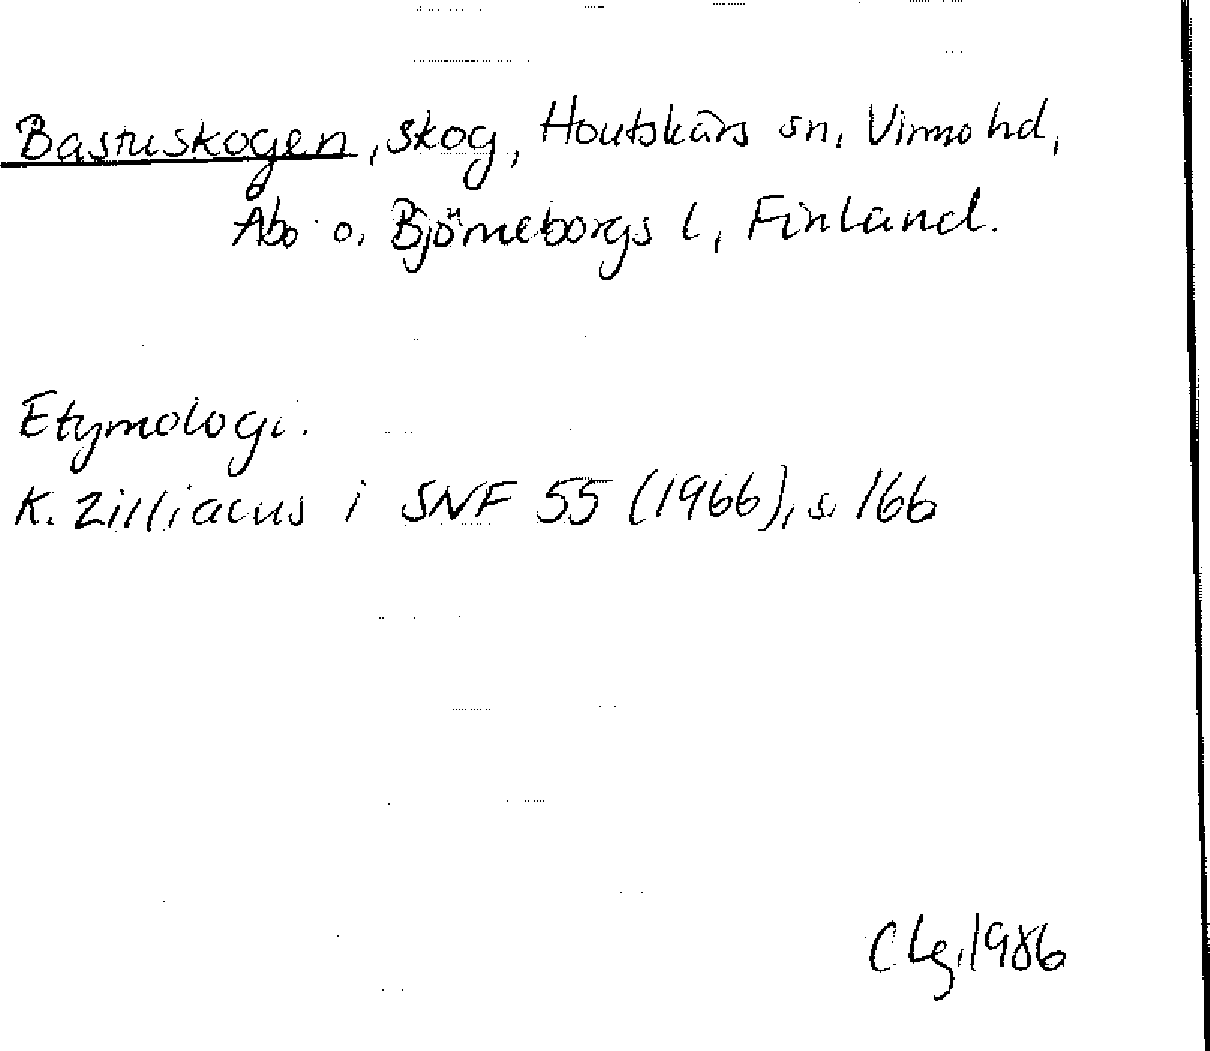 Bastuskogen, skog, Houtskärs sn, Virmo hd,
Åbo o. Björneborgs l, Finland.
Etymologi.
K. Zilliacus i SNF 55 (1966), s. 166
CLg. 1986